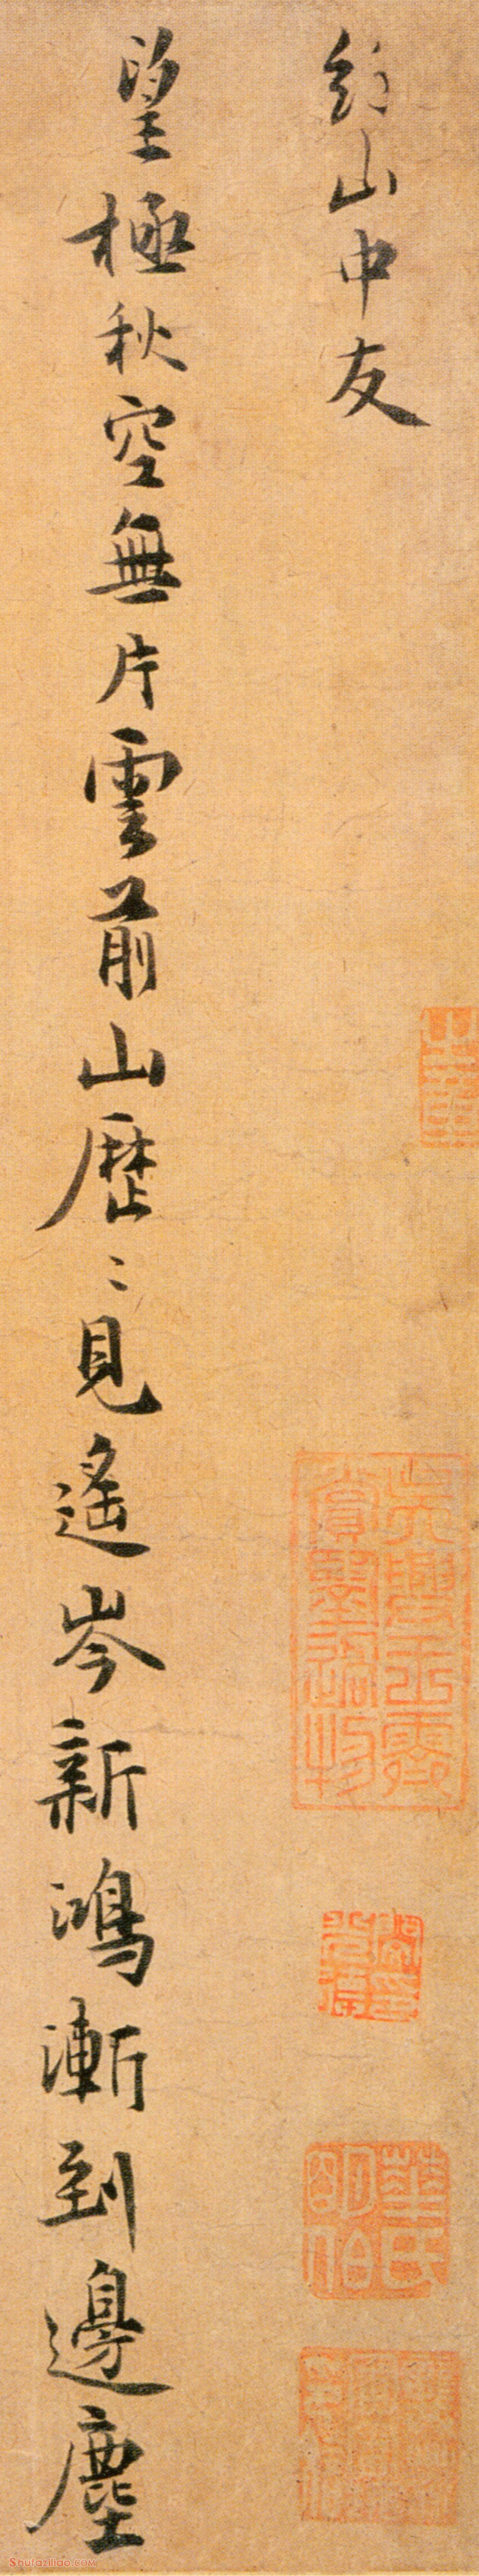 約山中友
望極秋空無片雲前山歷〻見遙岑新鴻漸到邊塵
吳興
華氏
Shufaziliao.COM